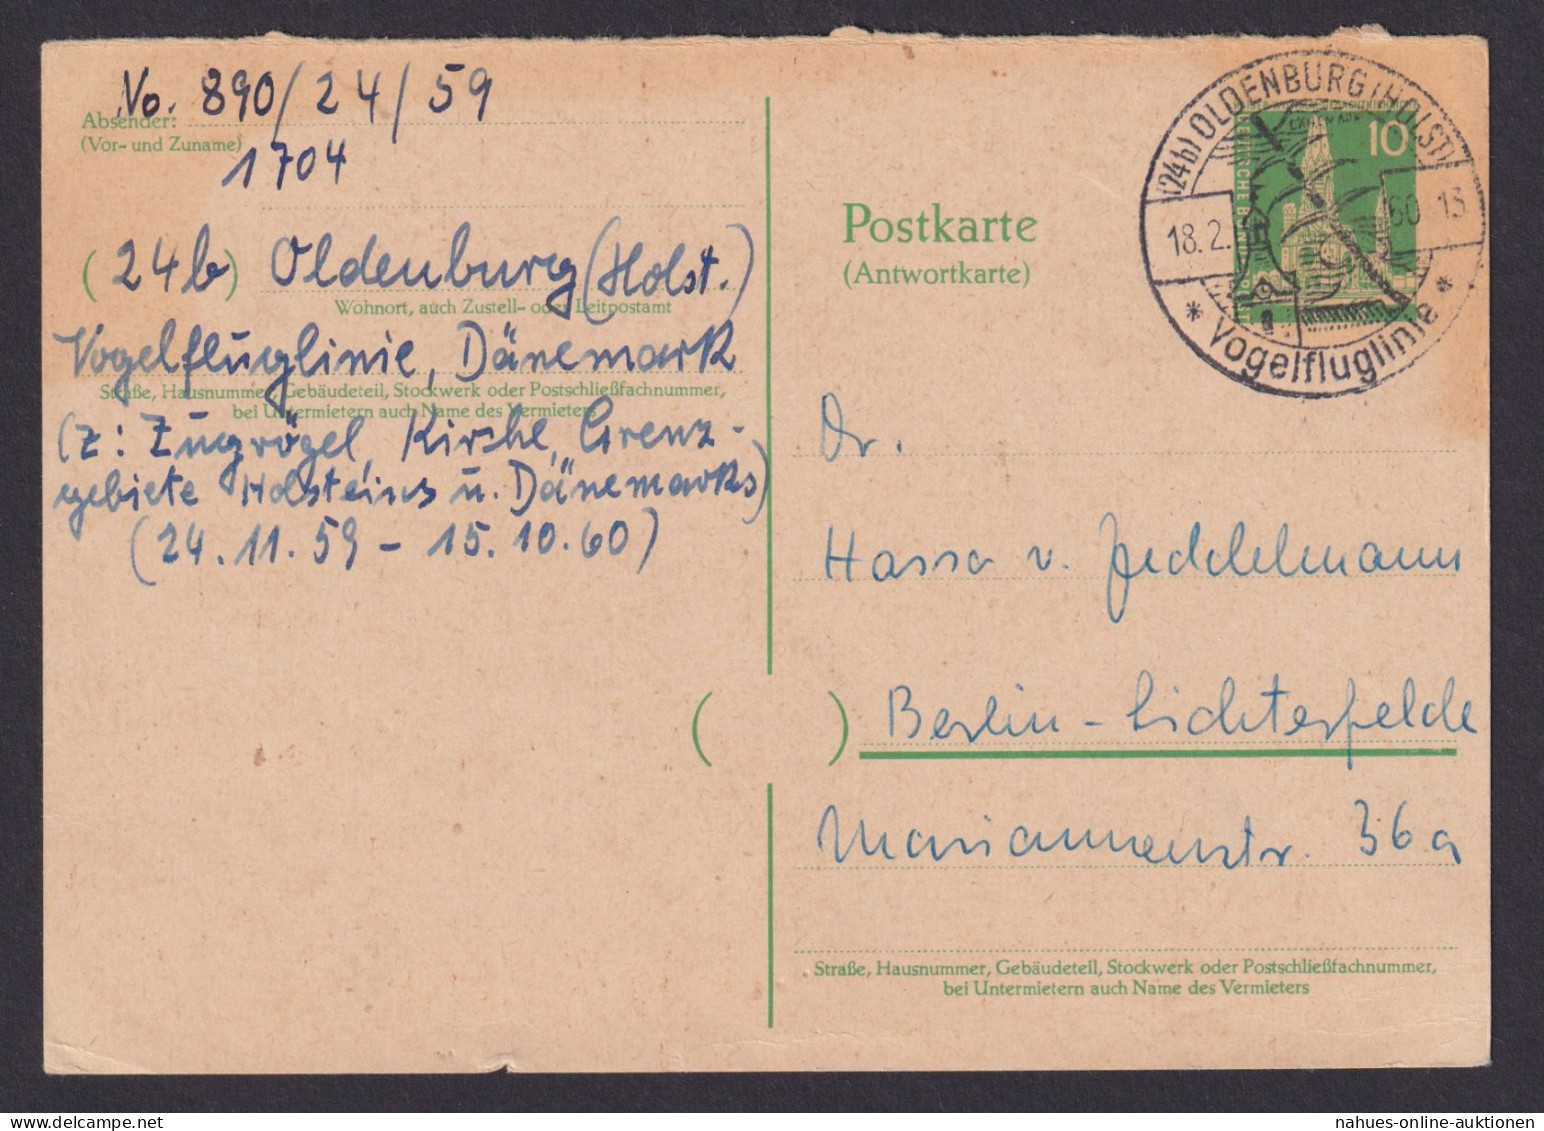 No. 890/24/59
Absender:
(Vor- und Zuname)
1704
(24b) Oldenburg (Holst.)
Wohnort, auch Zustell- oder Leitpostamt
Vogelfluglinie, Dänemark
Straße, Hausnummer, Gebäudeteil, Stockwerk oder Postschließfachnummer,
bei Untermietern auch Name des Vermieters
(Z: Zugvögel, Kirche, Grenz-
gebiete Holsteins u. Dänemarks)
(24.11.59 - 15.10.60)
Postkarte
(Antwortkarte)
10
(24b) OLDENBURG (HOLST)
18.2. 60 13
* Vogelfluglinie *
Dr.
Hasso v. Jeddelmann
Berlin-Lichterfelde
Mariannenstr. 36a
Straße, Hausnummer, Gebäudeteil, Stockwerk oder Postschließfachnummer,
bei Untermietern auch Name des Vermieters
nahues-online-auktionen